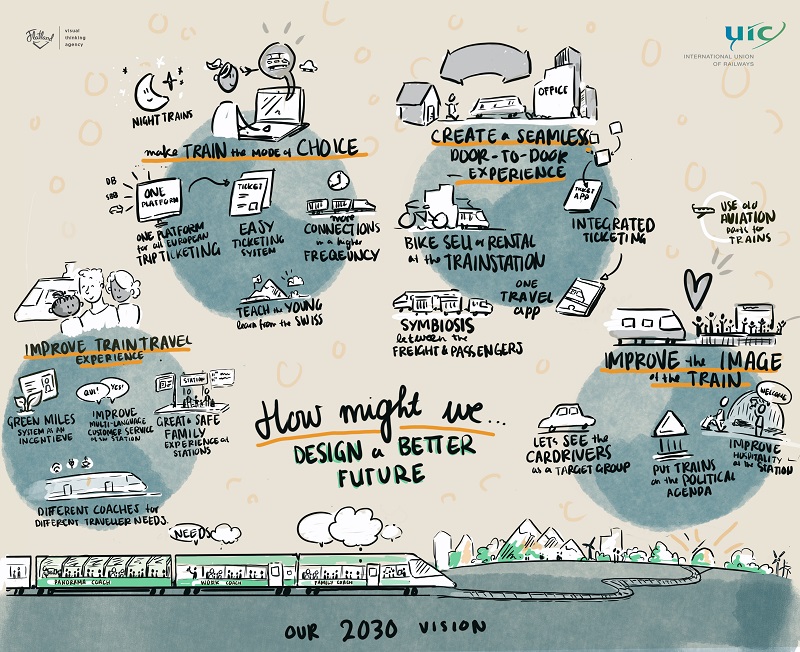 Flatland
visual
thinking
agency
uic
INTERNATIONAL UNION
OF RAILWAYS
NIGHT TRAINS
make TRAIN the MODE of CHOICE
DB
SBB
ONE
PLATFORM
ONE PLATFORM
for all EUROPEAN
TRIP TICKETING
TICKET
EASY
TICKETING
SYSTEM
more
CONNECTIONS
in a higher
FREQEUNCY
TEACH the YOUNG
learn from the SWISS
OFFICE
CREATE a SEAMLESS
DOOR-TO-DOOR
EXPERIENCE
TICKET
APP
INTEGRATED
TICKETING
BIKE SELL or RENTAL
at the TRAINSTATION
ONE
TRAVEL
app
SYMBIOSIS
between the
FREIGHT & PASSENGERS
USE old
AVIATION
parts for
TRAINS
IMPROVE TRAIN TRAVEL
EXPERIENCE
GREEN MILES
SYSTEM as an
INCENTIEVE
OUI?
YES!
IMPROVE
MULTI-LANGUAGE
CUSTOMER SERVICE
at the STATION
STATION
GREAT & SAFE
FAMILY
EXPERIENCE at
STATIONS
DIFFERENT COACHES for
DIFFERENT TRAVELLER NEEDS
IMPROVE the IMAGE
of the TRAIN
LETS SEE the
CARDRIVERS
as a TARGET GROUP
PUT TRAINS
on the POLITICAL
AGENDA
WELCOME
IMPROVE
HUSPITALITY
at the STATION
How might we...
DESIGN a BETTER
FUTURE
NEEDS
PANORAMA COACH
WORK COACH
FAMILY COACH
OUR 2030 VISION